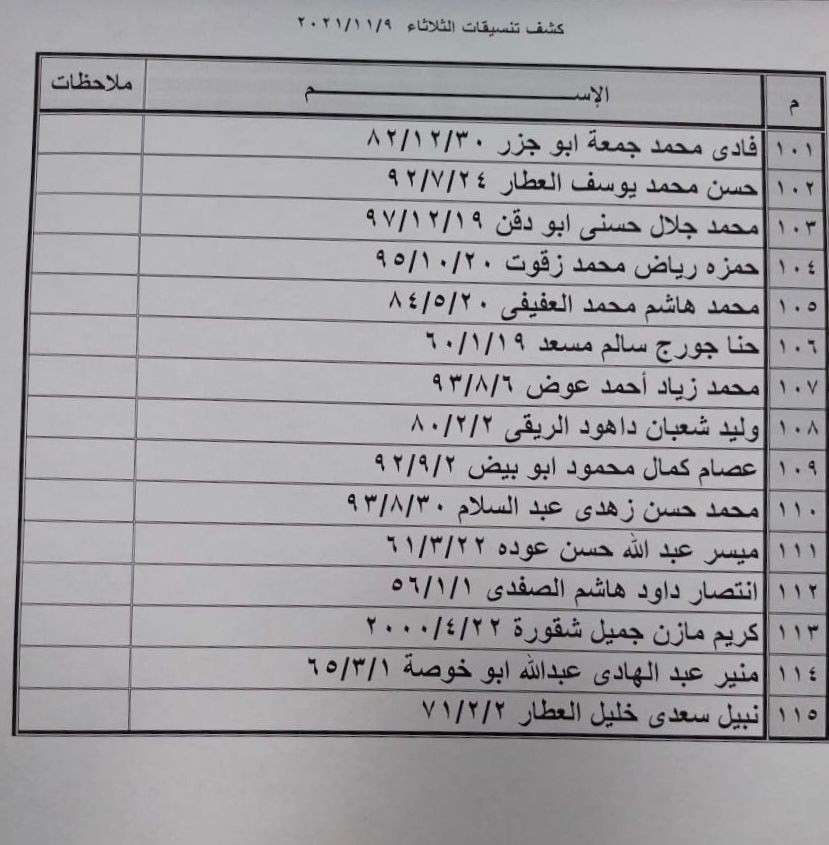 كشف تنسيقات الثلاثاء ٢٠٢١/١١/٩
م الإســــــــم ملاحظات
١٠١ فادى محمد جمعة ابو جزر ٨٢/١٢/٣٠
١٠٢ حسن محمد يوسف العطار ٩٢/٧/٢٤
١٠٣ محمد جلال حسنى ابو دقن ٩٧/١٢/١٩
١٠٤ حمزه رياض محمد زقوت ٩٥/١٠/٢٠
١٠٥ محمد هاشم محمد العفيفى ٨٤/٥/٢٠
١٠٦ حنا جورج سالم مسعد ٦٠/١/١٩
١٠٧ محمد زياد أحمد عوض ٩٣/٨/٦
١٠٨ وليد شعبان داهود الريقى ٨٠/٢/٢
١٠٩ عصام كمال محمود ابو بيض ٩٢/٩/٢
١١٠ محمد حسن زهدى عبد السلام ٩٣/٨/٣٠
١١١ ميسر عبد الله حسن عوده ٦١/٣/٢٢
١١٢ انتصار داود هاشم الصفدى ٥٦/١/١
١١٣ كريم مازن جميل شقورة ٢٠٠٠/٤/٢٢
١١٤ منير عبد الهادى عبدالله ابو خوصة ٦٥/٣/١
١١٥ نبيل سعدى خليل العطار ٧١/٢/٢